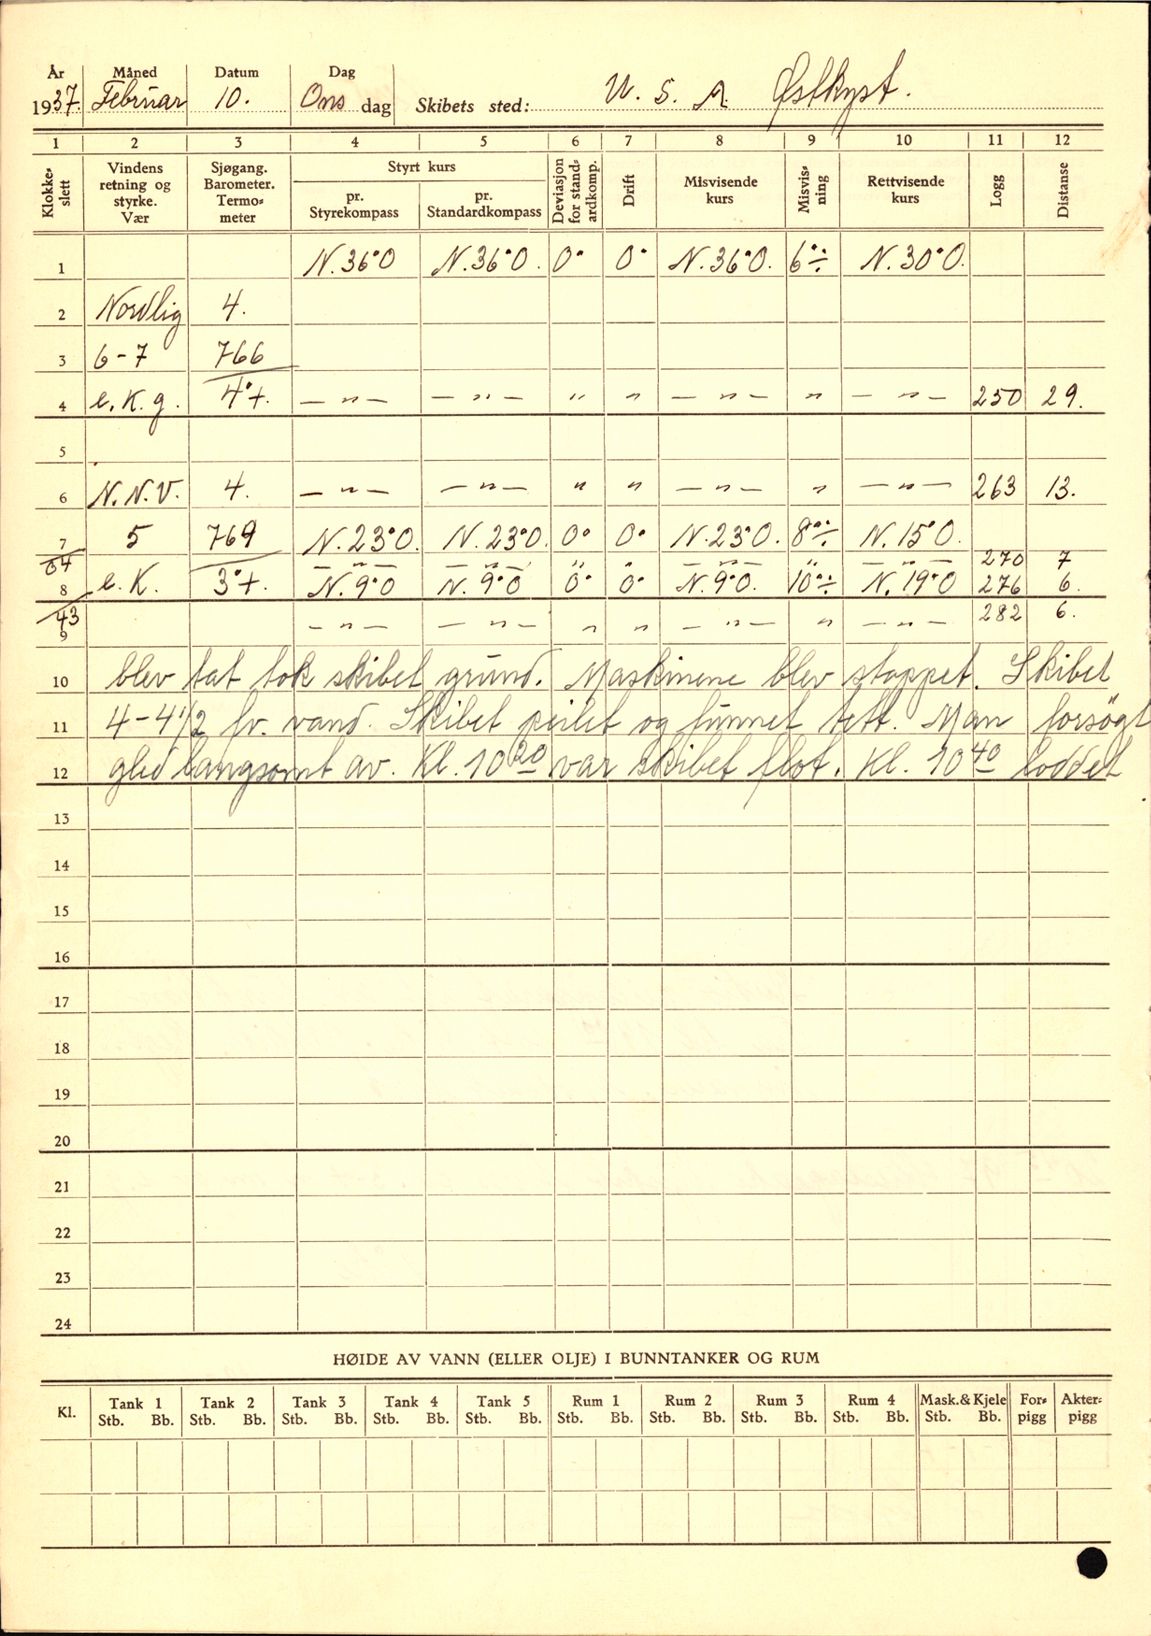 År Måned Datum Dag
1937. Februar 10. Ons dag Skibets sted: U. S. A. Østkyst.
1 2 3 4 5 6 7 8 9 10 11 12
Klokke-slett Vindens retning og styrke. Vær Sjøgang. Barometer. Termo-meter Styrt kurs pr. Styrekompass pr. Standardkompass Deviasjon for stand-ardkomp. Drift Misvisende kurs Misvis-ning Rettvisende kurs Logg Distanse
1 N. 36° O N. 36° O. 0° 0° N. 36° O. 6° ÷ N. 30° O.
2 Nordlig 4.
3 6-7 766
4 e. K. g. 4°+. — " — — " — " " — " — " — " — 250 29.
5
6 N. N. V. 4. — " — — " — " " — " — " — " — 263 13.
7 5 769 N. 23° O. N. 23° O. 0° 0° N. 23° O. 8° ÷ N. 15° O.
04 — " — — " — " " — " — " — " — 270 7
8 e. K. 3°+. N. 9° O N. 9° O 0° 0° N. 9° O. 10° ÷ N. 19° O 276 6.
43 — " — — " — " " — " — " — " — 282 6.
9
10 blev tat tok skibet grund. Maskinene blev stoppet. Skibet
11 4-4 1/2 fv. vand. Skibet peilet og funnet tett. Man forsøgt
12 gled langsomt av. Kl. 10 20 var skibet flot. Kl. 10 40 loddet
13
14
15
16
17
18
19
20
21
22
23
24
HØIDE AV VANN (ELLER OLJE) I BUNNTANKER OG RUM
Kl. Tank 1 Tank 2 Tank 3 Tank 4 Tank 5 Rum 1 Rum 2 Rum 3 Rum 4 Mask. & Kjele For-pigg Akter-pigg
Stb. Bb. Stb. Bb. Stb. Bb. Stb. Bb. Stb. Bb. Stb. Bb. Stb. Bb. Stb. Bb. Stb. Bb. Stb. Bb.